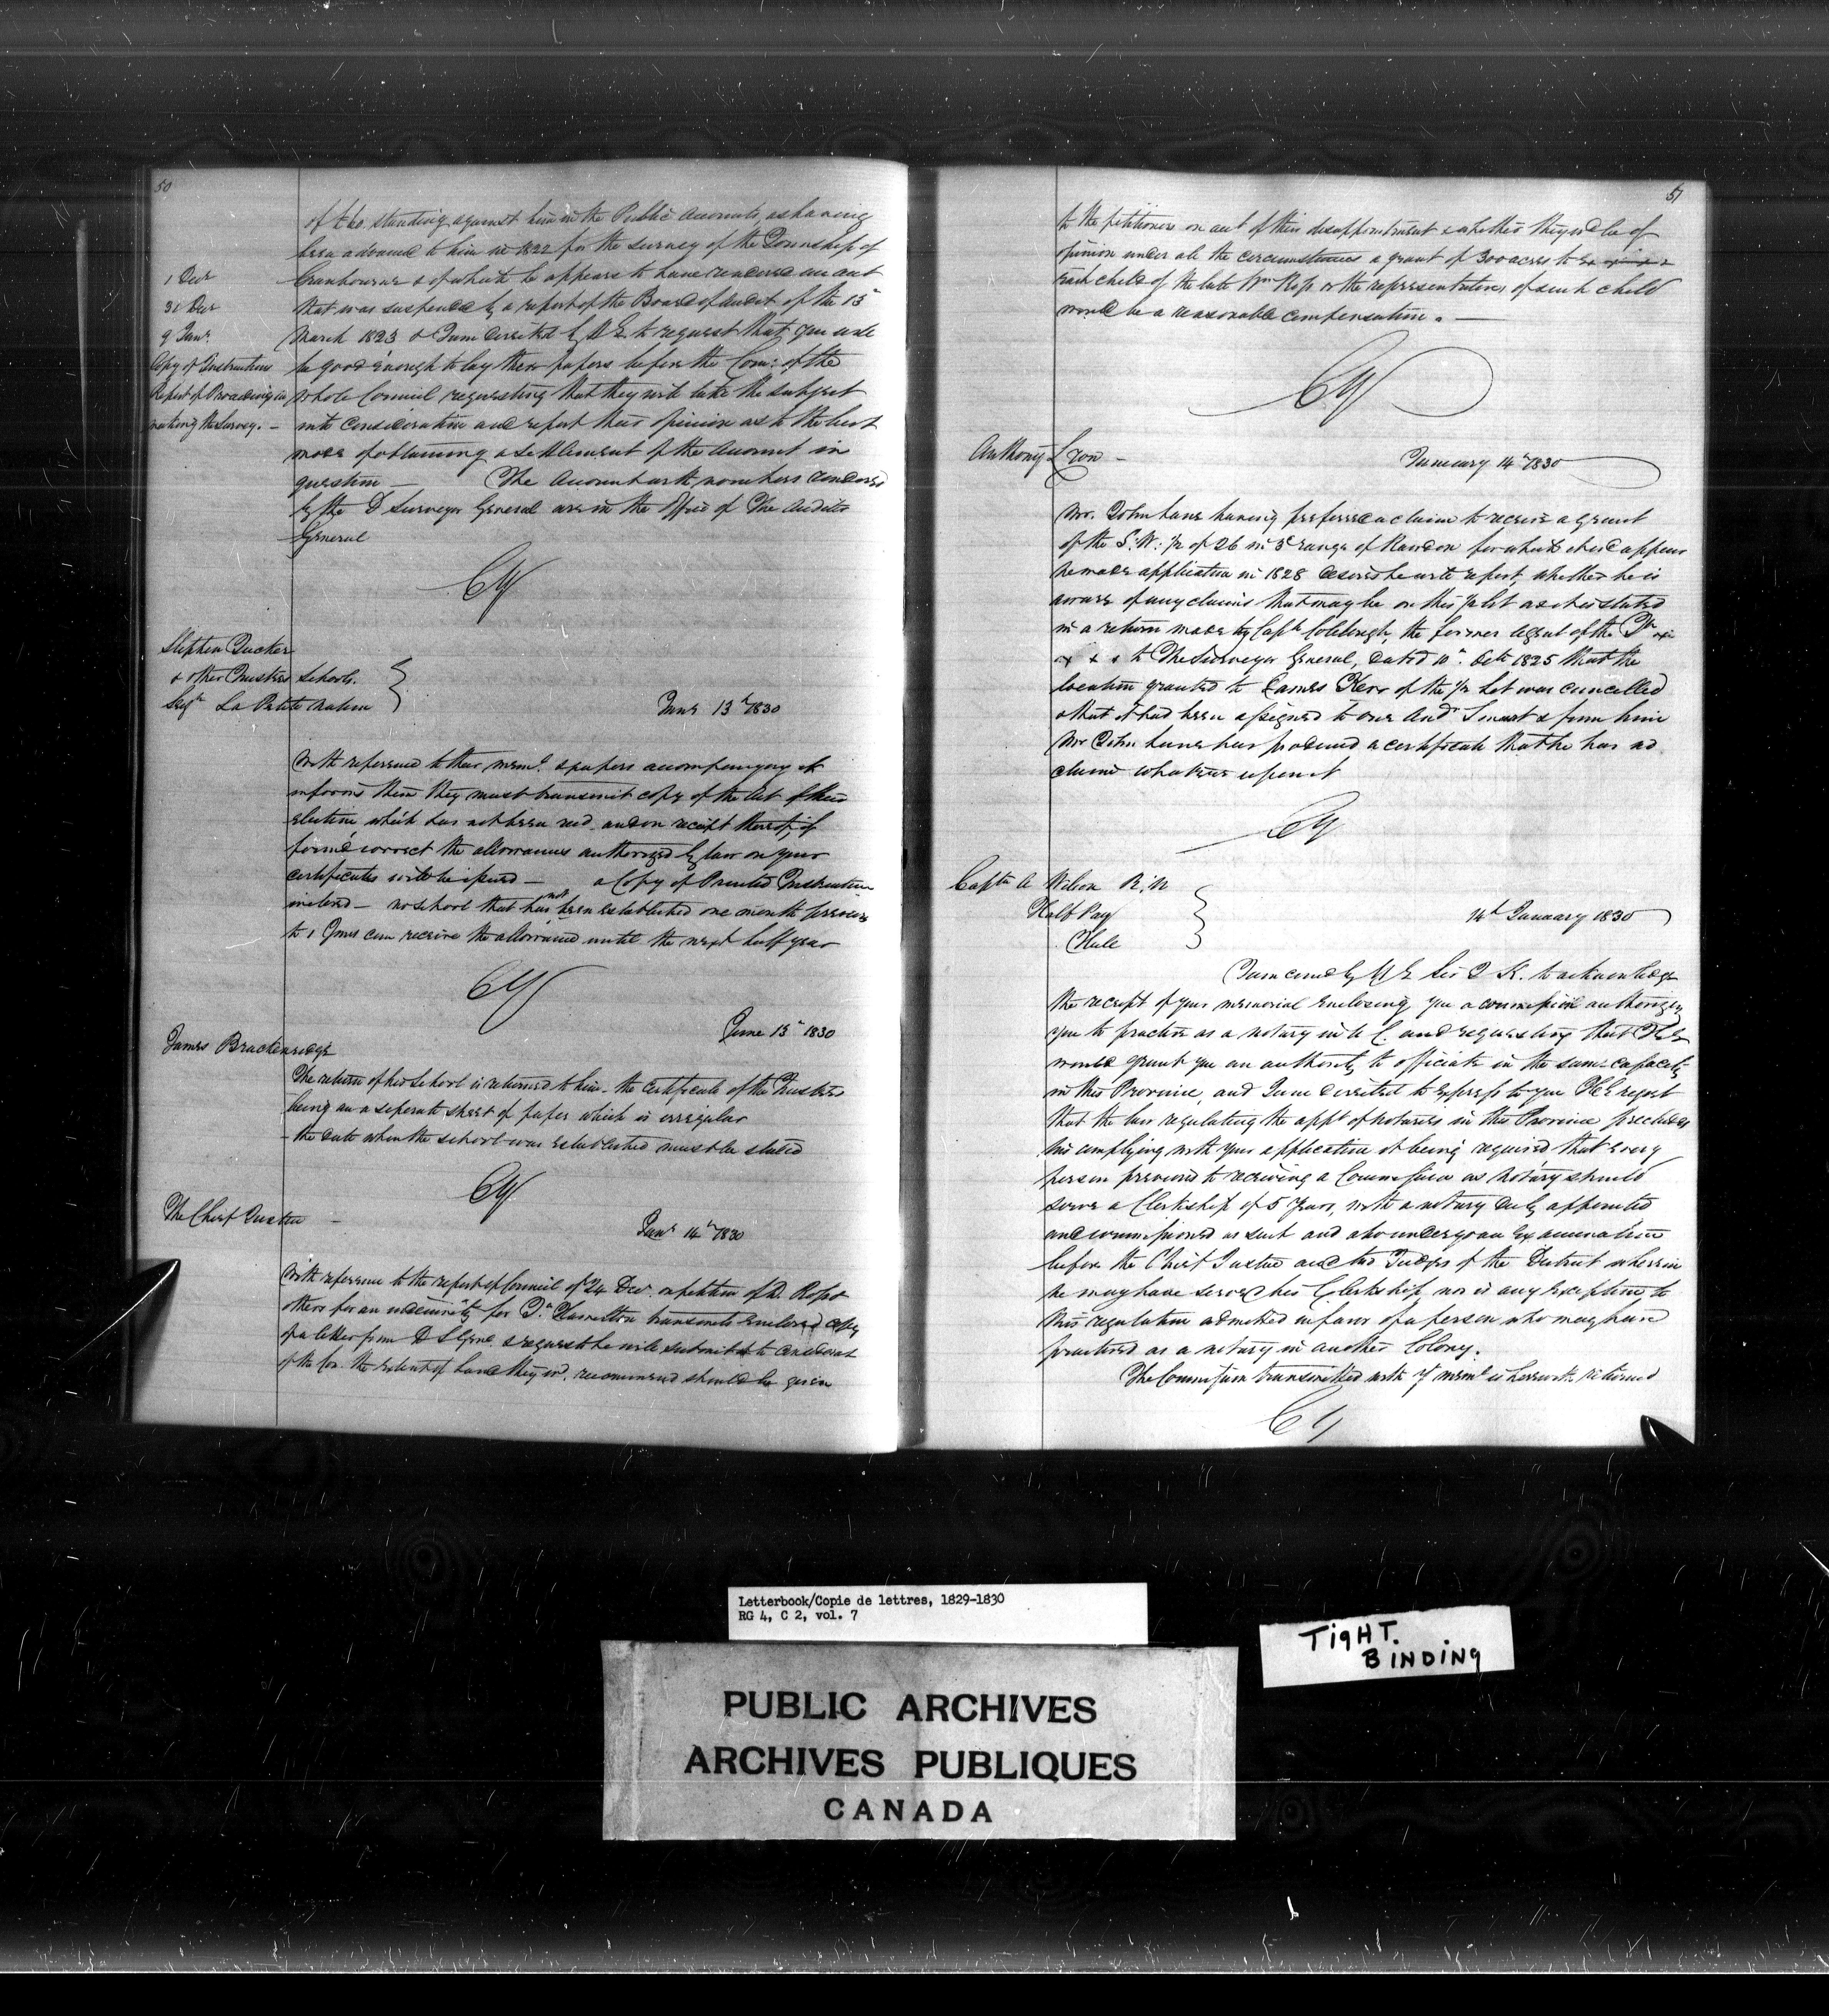 50
of £60. standing against him in the Public Accounts, as having
been advanced to him in 1822 for the survey of the Township of
Cranbourne & of which he appears to have rendered an acct
that was suspended by a report of the Board of Audit of the 15th
March 1823 & I am directed by H E. to request that you will
be good enough to lay these papers before the Com: of the
whole Council requesting that they will take the subject
into consideration and report their opinion as to the best
mode of obtaining a settlement of the Account in
question — The Account with vouchers rendered
by the D Surveyor General are in the Office of The Auditor
General
1 Decr
31 Decr
9 Jany.
Copy of Instructions
Report of Proceedings in
making the Survey. —
CY
Stephen Tucker
& other Trustees Schools.
Seigy La Petite Nation
Jany 13th 1830
With reference to their meml. & papers accompanying it
informs them they must transmit copy of the Act of their
election which has not been recd. and on receipt thereof, if
found correct the allowances authorized by law on your
certificates will be issued — a Copy of Printed Instructions
inclosed — no school that has not been established one month previous
to 1 Jany can receive the allowance until the next half year
CY
June 13th 1830
James Brackenridge
The return of his School is returned to him — the certificate of the Trustees
being on a seperate sheet of paper which is irregular
— the date when the school was established must be stated
CY
The Chief Justice —
Jany 14th 1830
With reference to the report of Council of 24 Decr. on petition of D. Ross &
others for an indemnity for Tp. Hamilton transmits enclosed copy
of a letter from D S Genl & request he will submit it to
of the Com. the extent of land they wd. recommend should be given
51
to the petitioners on acct of their disappointment & whether they wd be of
opinion under all the circumstances a grant of 300 acres to
each child of the late Wm Ross or the representatives of such child
would be a reasonable compensation. —
CY
Anthony Lyon —
January 14th 1830
Mr. John Lane having preferred a claim to receive a grant
of the S. W: ½ of 26 in 3d range of Rawdon for which it wd appear
he made application in 1828 desires he will report, whether he is
aware of any claims that may be on this ½ lot as it is stated
in a return made by Captn Colclough, the former agent of the Tp
x x x to The Surveyor General, dated 10th. Octr 1825 that the
location granted to James Kerr of the ½ Lot was cancelled
& that it had been assigned to one Andw Smart & from him
Mr John Lane has produced a certificate that he has no
claim whatever upon it
CY
Captn A Wilson R. N
Half Pay
Hull
14th January 1830
I am comd by H E Sir J K. to acknowledge
the receipt of your memorial enclosing you a commission authorizing
you to practice as a notary in U C. and requesting that H E
would grant you an authority to officiate in the same capacity
in this Province, and I am directed to express to you H E regret
that the law regulating the appt of notaries in this Province precludes
his complying with your application it being required that every
person previous to receiving a Commission as Notary should
serve a Clerkship of 5 Years, with a notary duly appointed
and commissioned as such and also undergo an Examination
before the Chief Justice and two Judges of the District wherein
he may have served his Clerkship, nor is any exception to
this regulation admitted in favor of a person who may have
practised as a notary in another Colony.
The Commission transmitted with yr meml is herewith returned
CY
Letterbook/Copie de lettres, 1829-1830
RG 4, C 2, vol. 7
TIGHT.
BINDING
PUBLIC ARCHIVES
ARCHIVES PUBLIQUES
CANADA